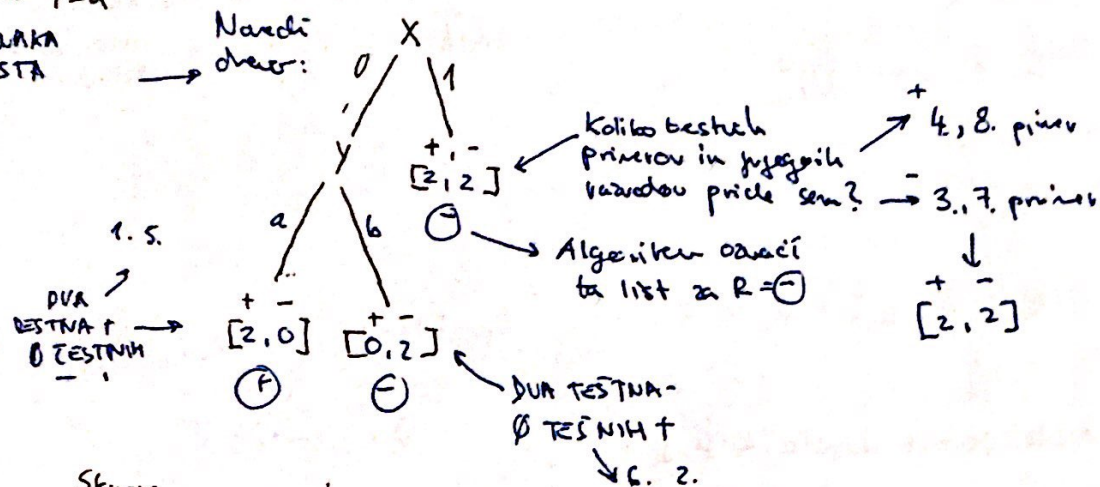 STA
Naredi
drevo:
X
0
1
Y
+, -
[2, 2]
⊖
Koliko testnih
primerov in njegovih
razredov pride sem?
+
4., 8. primer
-
3., 7. primer
+ -
[2, 2]
Algoritem označi
ta list za R=⊖
a
b
1. 5.
DVA
TESTNA +
0 TESTNIH
-
+ -
[2, 0]
⊕
+ -
[0, 2]
⊖
DVA TESTNA -
Ø TESNIH +
6. 2.